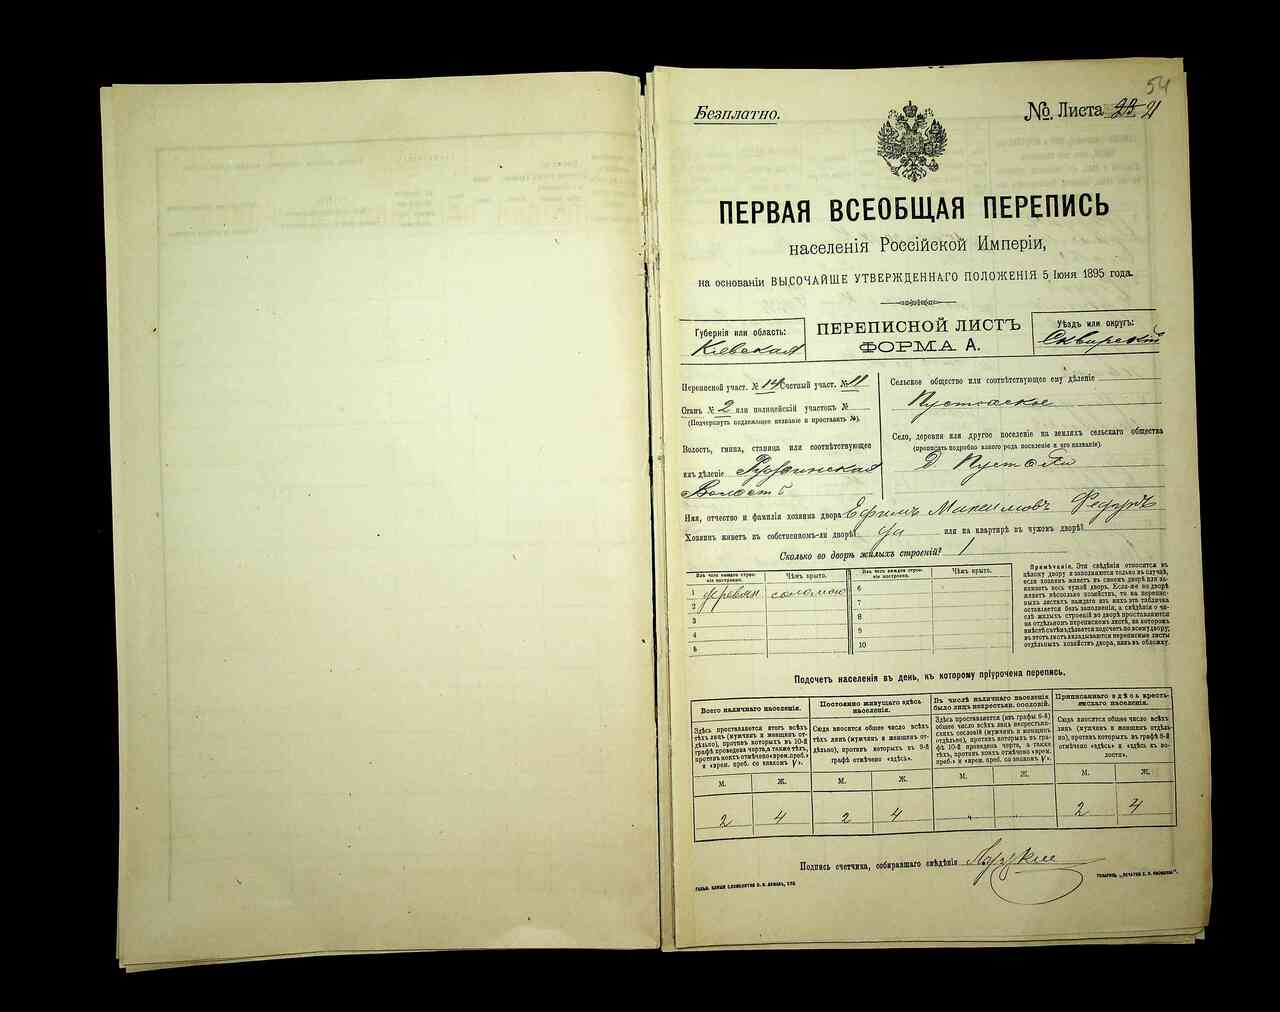 54
Безплатно.
№ Листа 21
ПЕРВАЯ ВСЕОБЩАЯ ПЕРЕПИСЬ
населенія Россійской Имперіи,
на основаніи ВЫСОЧАЙШЕ УТВЕРЖДЕННАГО ПОЛОЖЕНІЯ 5 Іюня 1895 года.
Губернія или область:
Кіевская
ПЕРЕПИСНОЙ ЛИСТЪ
ФОРМА А.
Уѣздъ или округъ:
Сквирскій
Переписной участ. № 14 Счетный участ. № 11
Станъ № 2 или полицейскій участокъ №
(Подчеркнуть подлежащее названіе и проставить №).
Волость, гмина, станица или соотвѣтствующее
имъ дѣленіе
Волость
Сельское общество или соотвѣтствующее ему дѣленіе
Село, деревня или другое поселеніе на земляхъ сельскаго общества
(прописать подробно какого рода поселеніе и его названіе).
Д
Имя, отчество и фамилія хозяина двора Ефимъ Максимовъ
Хозяинъ живетъ въ собственномъ-ли дворѣ? да или на квартирѣ въ чужомъ дворѣ?
Сколько во дворѣ жилыхъ строеній? 1
Изъ чего каждое строеніе построено.
Чѣмъ крыто.
Изъ чего каждое строеніе построено.
Чѣмъ крыто.
1 деревян соломою
2
3
4
5
6
7
8
9
10
Примѣчанія. Эти свѣдѣнія относятся къ
цѣлому двору и заполняются только въ случаѣ,
если хозяинъ живетъ въ своемъ дворѣ или за-
нимаетъ весь чужой дворъ. Если-же на дворѣ
живетъ нѣсколько хозяйствъ, то на перепис-
ныхъ листахъ каждаго изъ нихъ эта табличка
оставляется безъ заполненія, а свѣдѣнія о чи-
слѣ жилыхъ строеній во дворѣ проставляются
на отдѣльномъ переписномъ листѣ, на которомъ
вмѣстѣ съ тѣмъ дѣлается подсчетъ по всему двору;
въ этотъ листъ вкладываются переписные листы
отдѣльныхъ хозяйствъ двора, какъ въ обложку.
Подсчетъ населенія въ день, къ которому пріурочена перепись.
Всего наличнаго населенія.
Здѣсь проставляется итогъ всѣхъ
тѣхъ лицъ (мужчинъ и женщинъ от-
дѣльно), противъ которыхъ въ 10-й
графѣ проведена черта, а также тѣхъ,
противъ коихъ отмѣчено «врем. преб.»
и «врем. преб. со знакомъ V».
Постоянно живущаго здѣсь
населенія.
Сюда вносится общее число всѣхъ
тѣхъ лицъ (мужчинъ и женщинъ от-
дѣльно), противъ которыхъ въ 9-й
графѣ отмѣчено «здѣсь».
Въ числѣ наличнаго населенія
было лицъ некрестьян. сословій.
Здѣсь проставляется (изъ графы 8-й)
общее число всѣхъ лицъ некрестьян-
скихъ сословій (мужчинъ и женщинъ
отдѣльно), противъ которыхъ въ гра-
фѣ 10-й проведена черта, а также
тѣхъ, противъ коихъ отмѣчено «врем.
преб.» и «врем. преб. со знакомъ V».
Приписаннаго здѣсь кресть-
янскаго населенія.
Сюда вносится общее число всѣхъ
лицъ (мужчинъ и женщинъ отдѣль-
но), противъ которыхъ въ графѣ 8-й
отмѣчено «здѣсь» и «здѣсь къ во-
лости».
М. Ж. М. Ж. М. Ж. М. Ж.
2 4 2 4 " " 2 4
Подпись счетчика, собиравшаго свѣдѣнія